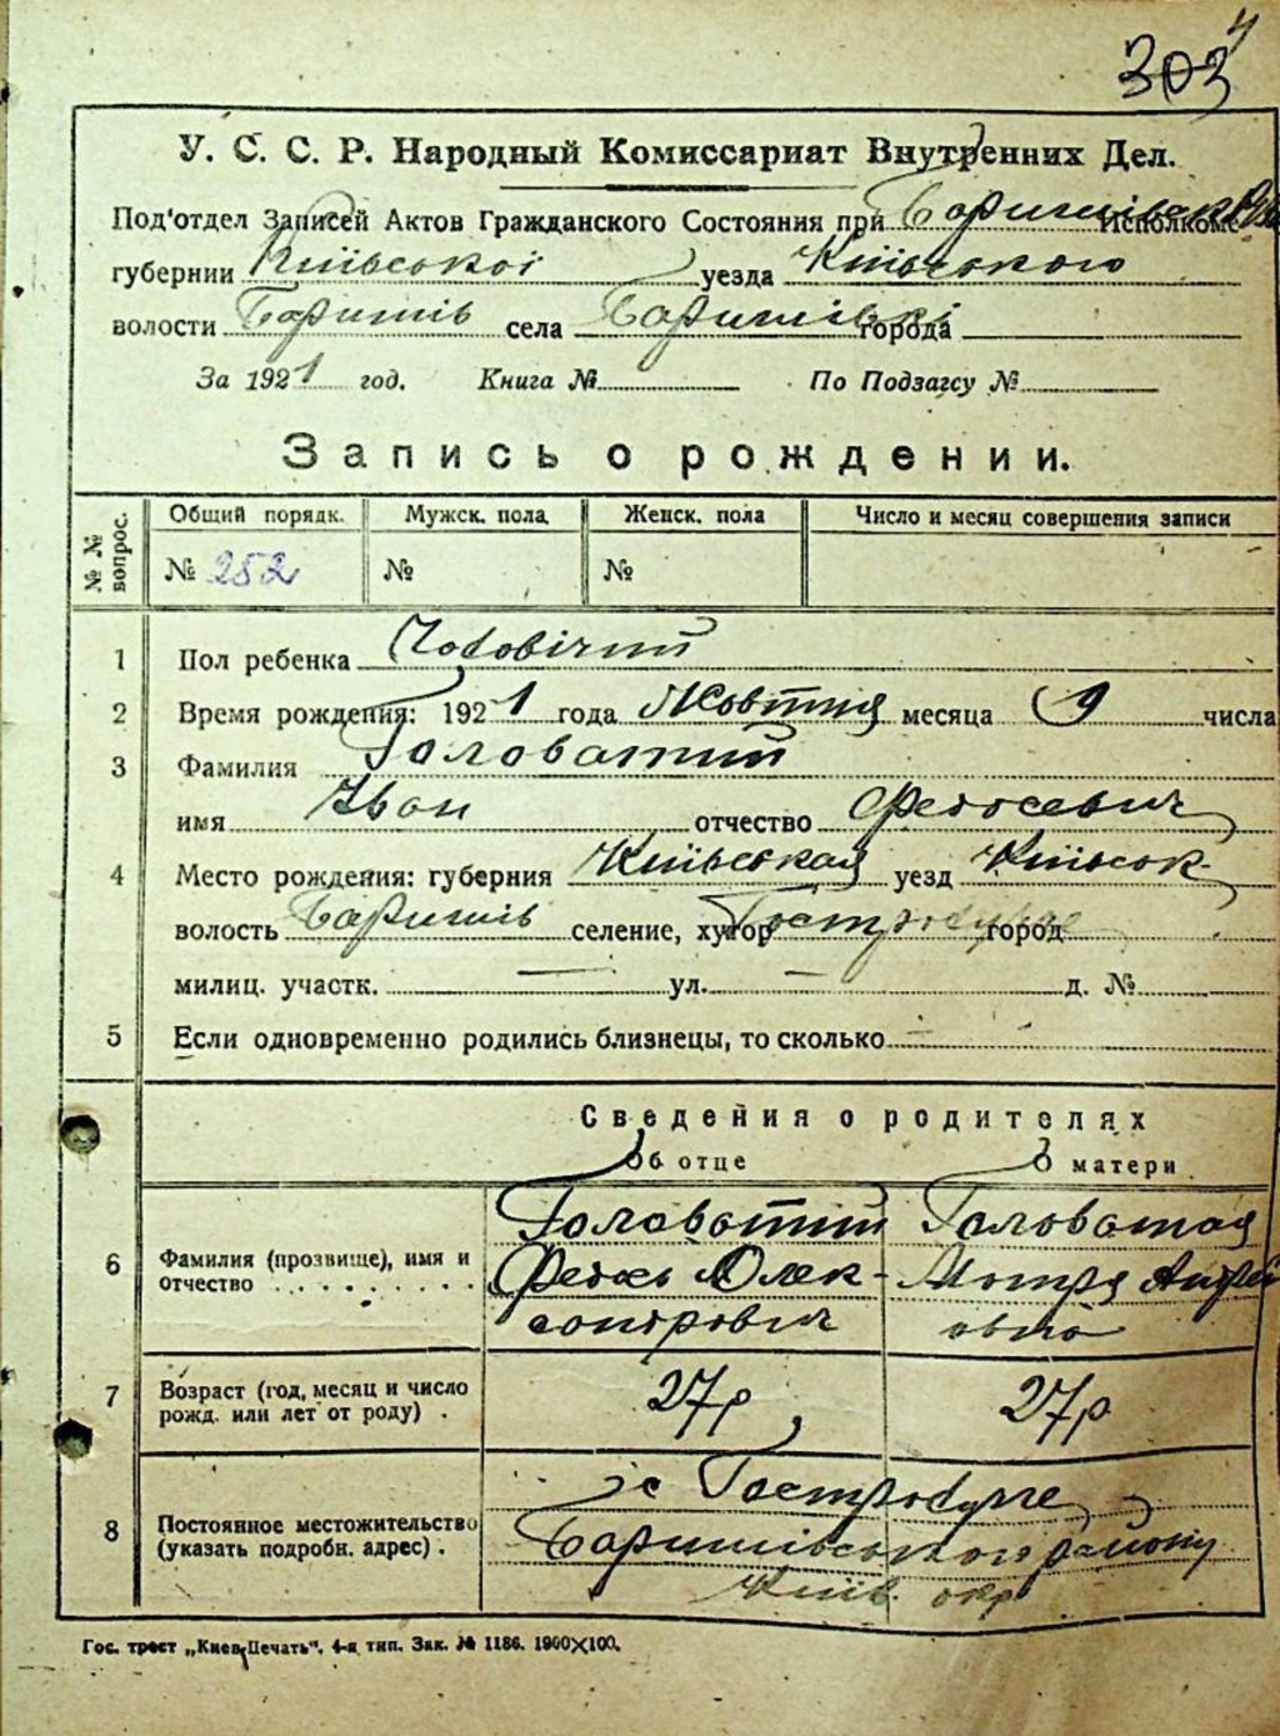 4
303
У. С. С. Р. Народный Комиссариат Внутренних Дел.
Под'отдел Записей Актов Гражданского Состояния при Баришівськ Исполкоме
губернии Київської уезда Київського
волости Баришів села Баришівкі города
За 1921 год. Книга № По Подзагсу №
Запись о рождении.
№ № вопрос. Общий порядк. Мужск. пола Женск. пола Число и месяц совершения записи
№ 252 № №
1 Пол ребенка Чоловічий
2 Время рождения: 1921 года Жовтня месяца 9 числа
3 Фамилия Головатий
имя Іван отчество Федосевич
4 Место рождения: губерния Київская уезд Київськ
волость Баришів селение, хутор Гостролучче город
милиц. участк. — ул. — д. №
5 Если одновременно родились близнецы, то сколько —
Сведения о родителях
Об отце О матери
6 Фамилия (прозвище), имя и отчество Головатий Головатая
Федось Олек- Мотря Андрей
сондрович овна
7 Возраст (год, месяц и число рожд. или лет от роду) 27р 27р
8 Постоянное местожительство (указать подробн. адрес) с Гостролучче
Баришівського району
Київ. окр
Гос. трест „Киев-Печать“. 4-я тип. Зак. № 1186. 1900×100.